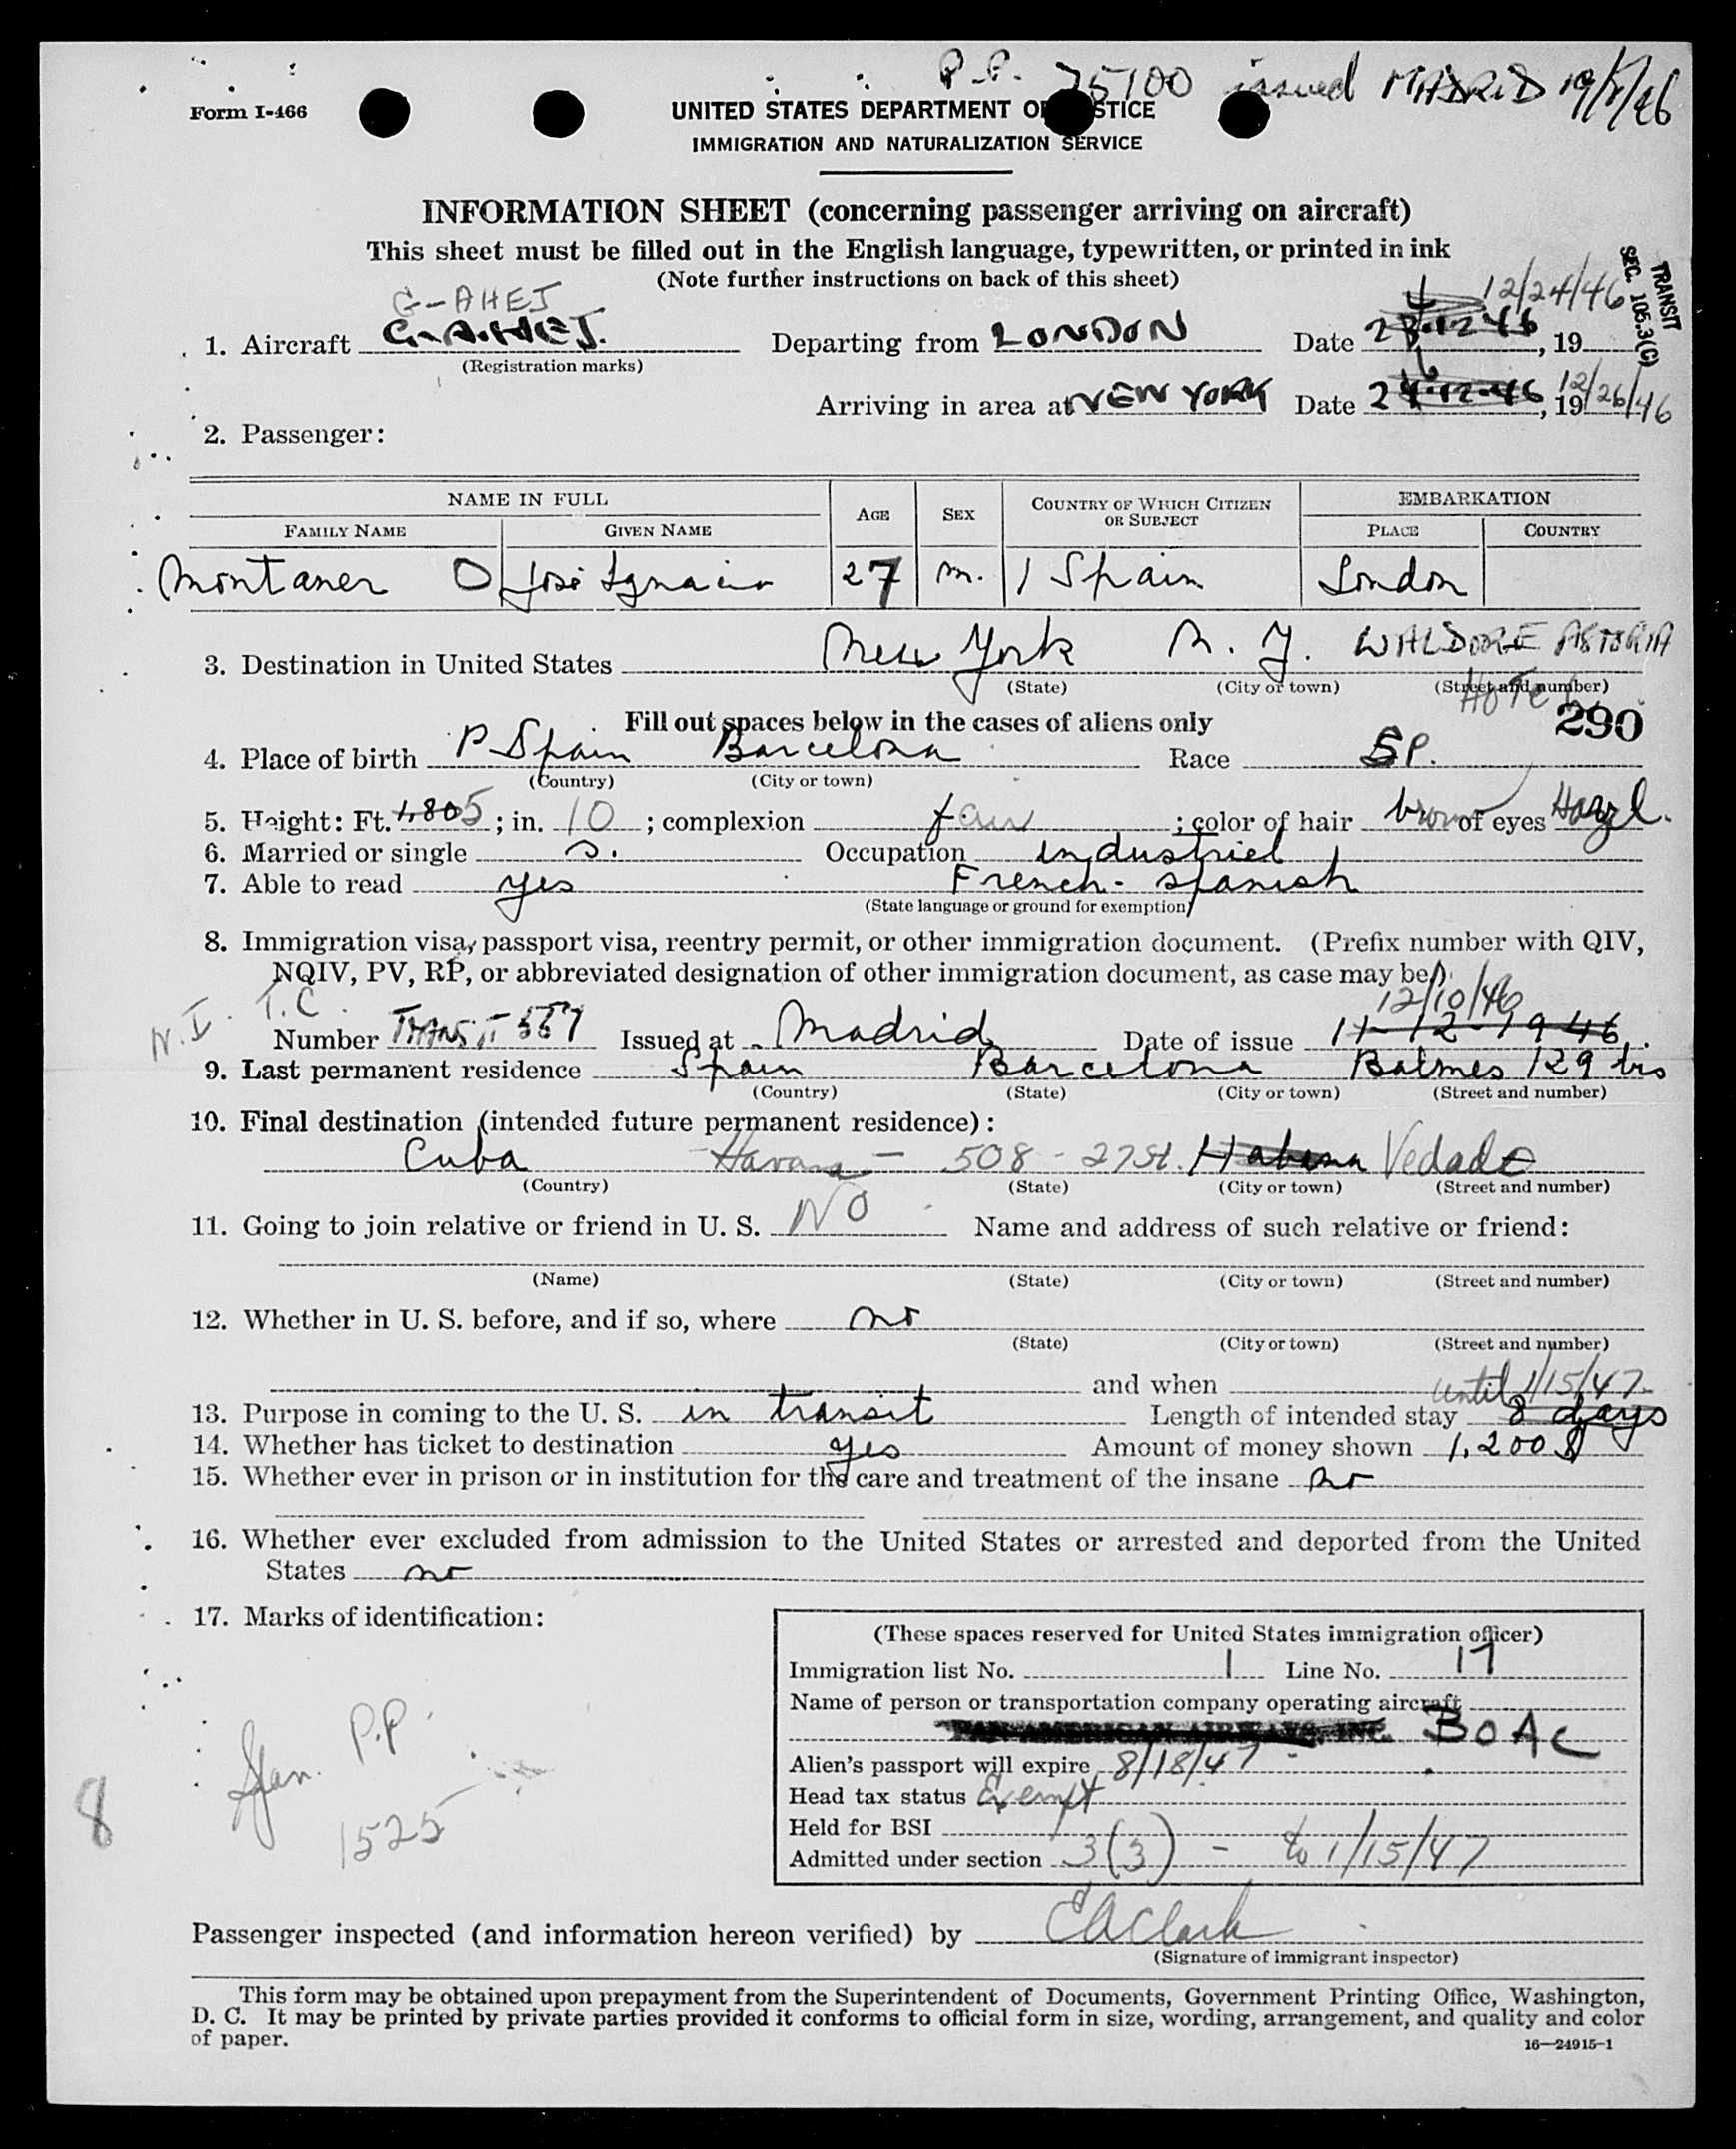 P.P. 75100 issued MADRID
Form I-466
UNITED STATES DEPARTMENT OF JUSTICE
IMMIGRATION AND NATURALIZATION SERVICE
INFORMATION SHEET (concerning passenger arriving on aircraft)
This sheet must be filled out in the English language, typewritten, or printed in ink
(Note further instructions on back of this sheet)
TRANSIT
SEC. 105.3(C)
G-AHEJ 12/24/46
1. Aircraft G-AHEJ. Departing from LONDON Date 12-46, 19
(Registration marks)
Arriving in area at NEW YORK Date 12-46, 19 12/26/46
2. Passenger:
NAME IN FULL AGE SEX COUNTRY OF WHICH CITIZEN OR SUBJECT EMBARKATION
FAMILY NAME GIVEN NAME PLACE COUNTRY
Montaner O José Ignacio 27 m. 1 Spain London
3. Destination in United States New York N. Y. WALDORF ASTORIA
(State) (City or town) (Street and number)
HOTEL
290
Fill out spaces below in the cases of aliens only
4. Place of birth P Spain Barcelona Race SP.
(Country) (City or town)
5. Height: Ft. 1,80 5; in. 10; complexion fair; color of hair brown of eyes Hazel.
6. Married or single s. Occupation industriel
7. Able to read yes French - spanish
(State language or ground for exemption)
8. Immigration visa, passport visa, reentry permit, or other immigration document. (Prefix number with QIV,
NQIV, PV, RP, or abbreviated designation of other immigration document, as case may be).
N.I. T.C. 12/10/46
Number TRANSIT 557 Issued at Madrid Date of issue 11-12-1946.
9. Last permanent residence Spain Barcelona Balmes 129 bis
(Country) (State) (City or town) (Street and number)
10. Final destination (intended future permanent residence):
Cuba Havana - 508 - 27 St. Habana Vedado
(Country) (State) (City or town) (Street and number)
11. Going to join relative or friend in U. S. NO Name and address of such relative or friend:
(Name) (State) (City or town) (Street and number)
12. Whether in U. S. before, and if so, where no
(State) (City or town) (Street and number)
and when
until 1/15/47
13. Purpose in coming to the U. S. in transit Length of intended stay 8 days
14. Whether has ticket to destination yes Amount of money shown 1,200 $
15. Whether ever in prison or in institution for the care and treatment of the insane no
16. Whether ever excluded from admission to the United States or arrested and deported from the United
States no
17. Marks of identification:
(These spaces reserved for United States immigration officer)
Immigration list No. 1 Line No. 17
Name of person or transportation company operating aircraft
PAN AMERICAN AIRWAYS, INC. BOAC
Alien's passport will expire 8/18/47
Head tax status Exempt
Held for BSI
Admitted under section 3(3) - to 1/15/47
P.P.
1525
8
Passenger inspected (and information hereon verified) by EAClark
(Signature of immigrant inspector)
This form may be obtained upon prepayment from the Superintendent of Documents, Government Printing Office, Washington,
D. C. It may be printed by private parties provided it conforms to official form in size, wording, arrangement, and quality and color
of paper.
16—24915-1